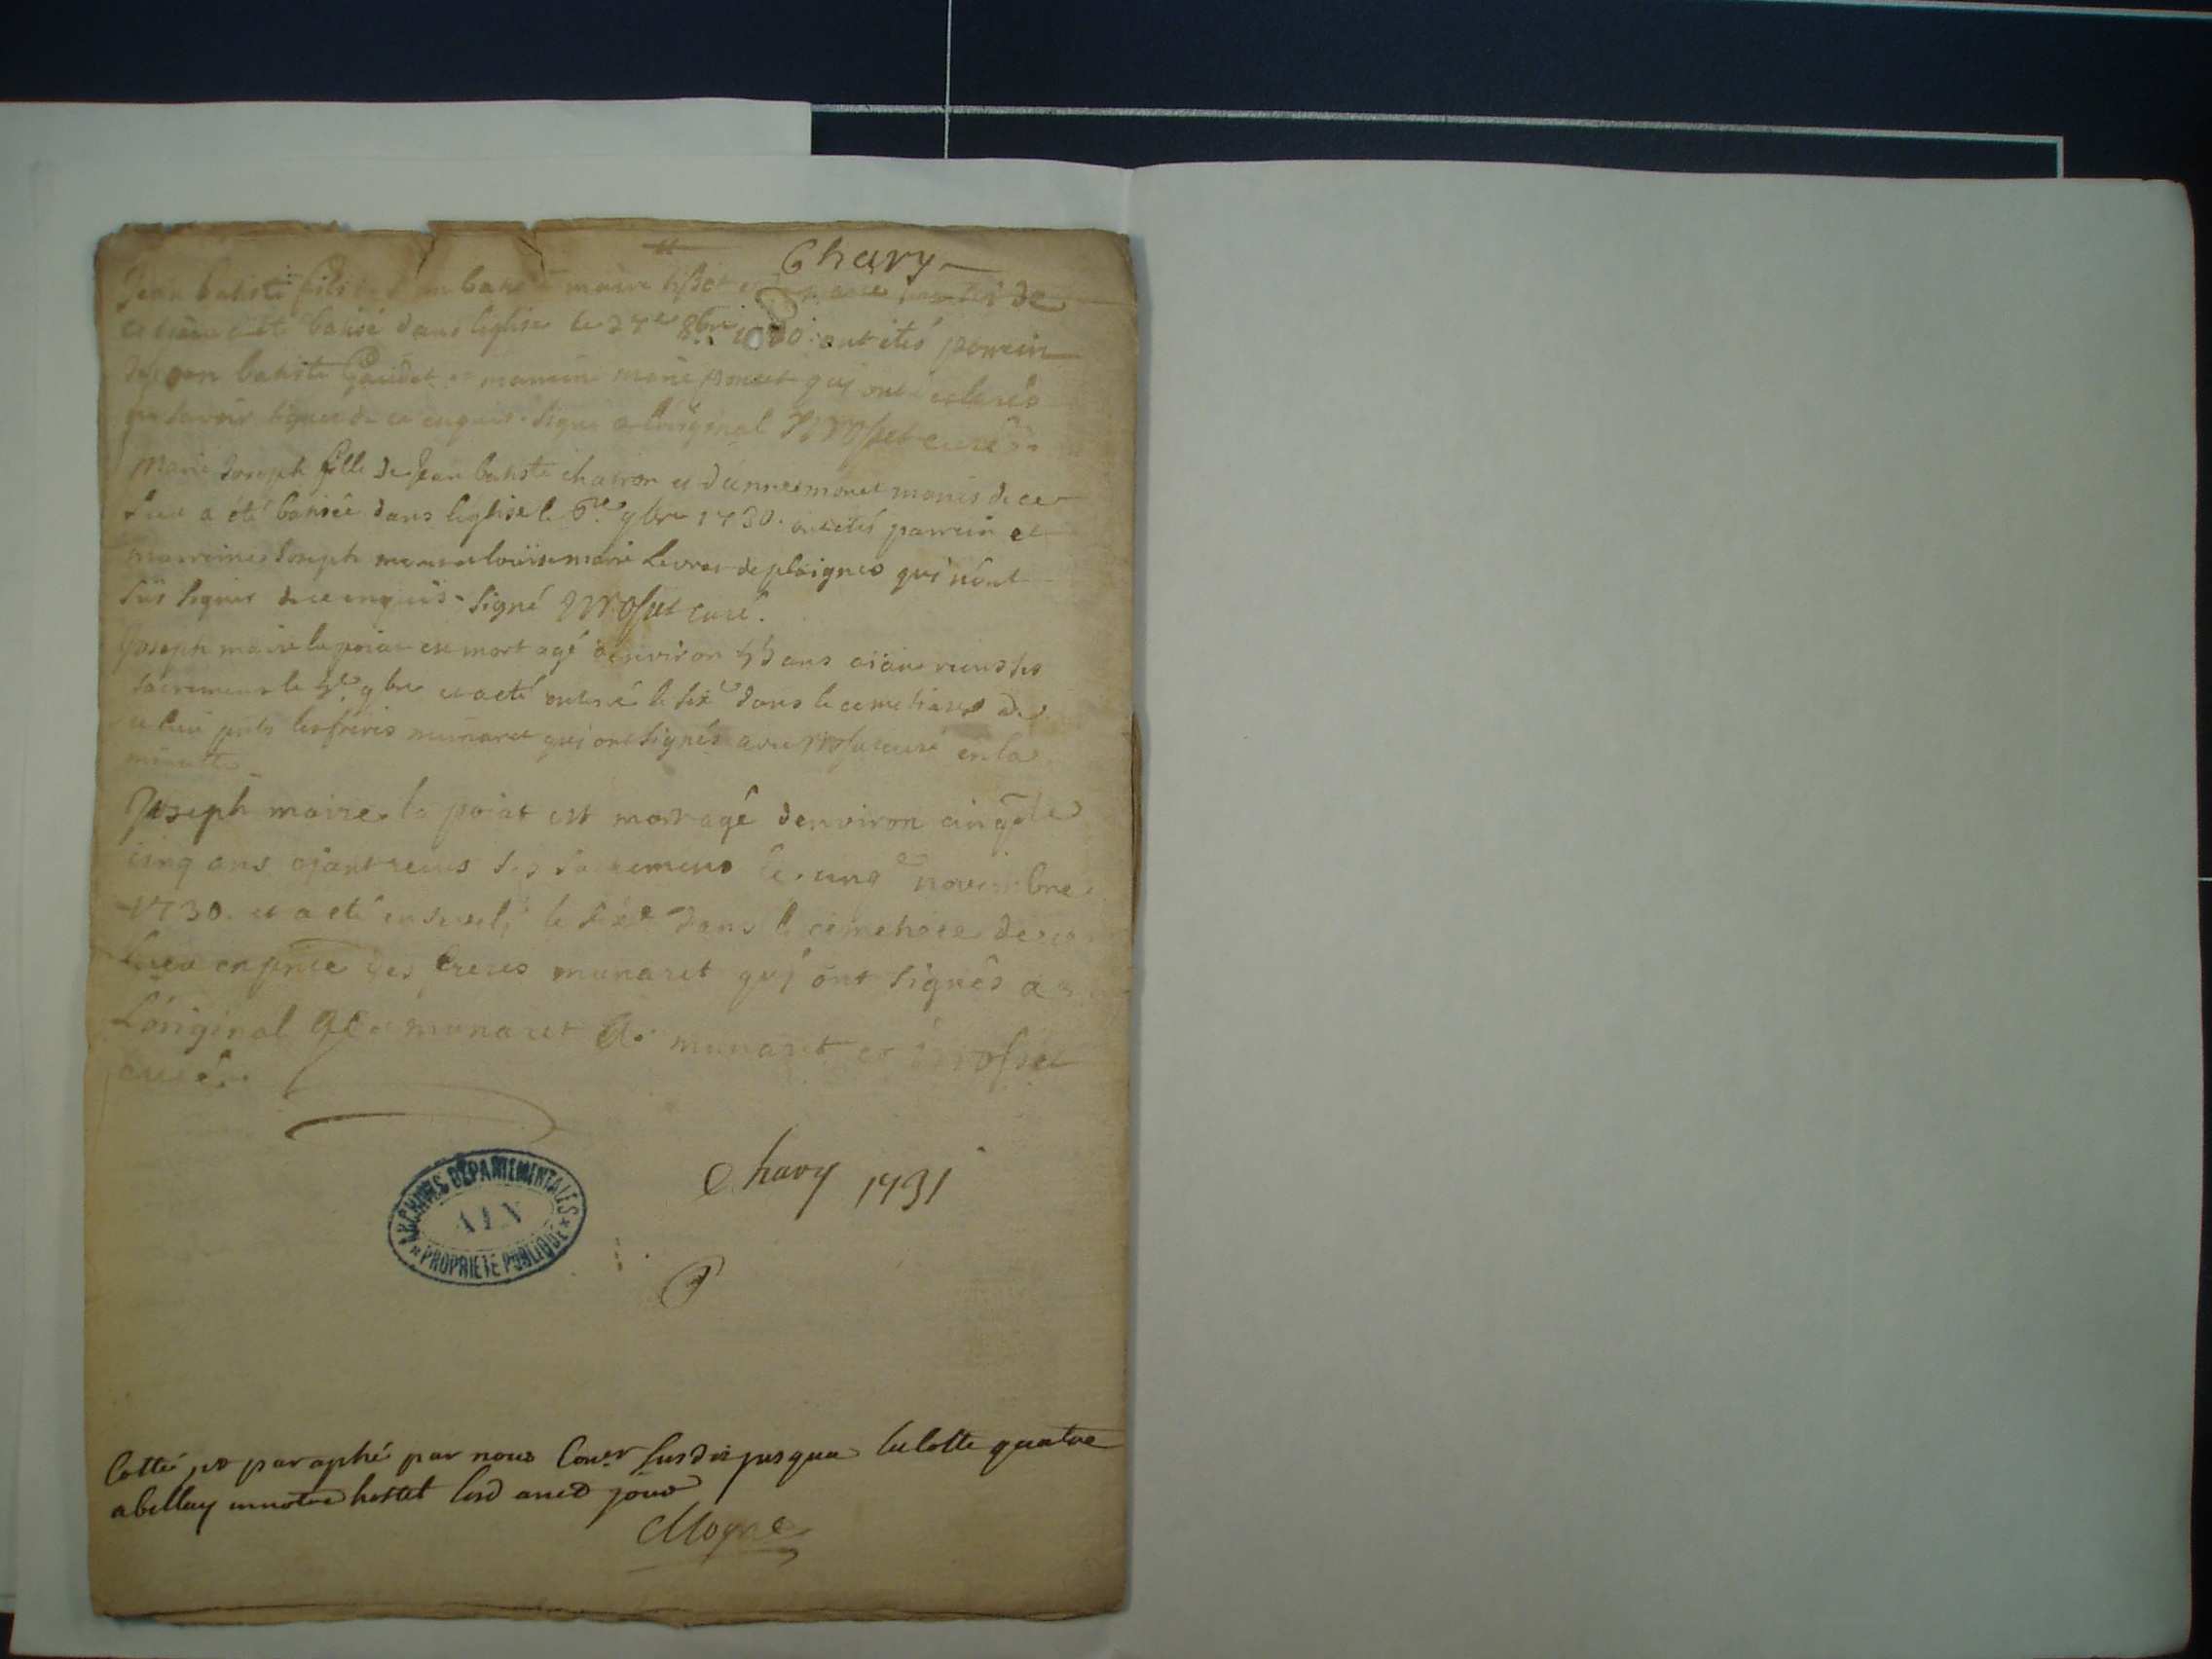 Chary
Jean batiste fils de Jean batiste maire et de
ce lieu a été batisé dans leglise le 27e 8bre 1730 ont étés parrein
Jean batiste Gaudet et marreine marie monet qui ont declarés
ne savoir signer de ce enquis. signé a loriginal curé
Marie Joseph fille de Jean batiste chairon et danne monet mariés de ce
lieu a été batisée dans leglise le 6e 9bre 1730. ont étés parrein et
marreine Joseph et loüise marie de plaignes qui nônt
sûs signer de ce enquis. signé curé.
Joseph maire la poiat est mort agé denviron 55 ans aiant recus ses
sacremens le 5e 9bre et a été enterré le sixe dans le cemetiere de
ce lieu pnts les freres munaret qui ont signés avec curé en la
minutte
Joseph maire la poiat est mort agé denviron cinqte
cinq ans ajant recus ses sacremens le cinqe novembre
1730. et a eté enseveli le sixe dans le cemetiere de ce
lieu en pnce des freres munaret quj ont signés a
Lóriginal munaret munaret et
curé.
Chary 1731
ARCHIVES DÉPARTEMENTALES
AIN
PROPRIÉTÉ PUBLIQUE
Cotté et paraphé par nous susdit jusqua la cotte quatre
a bellay en notre hostel lesd an et jour